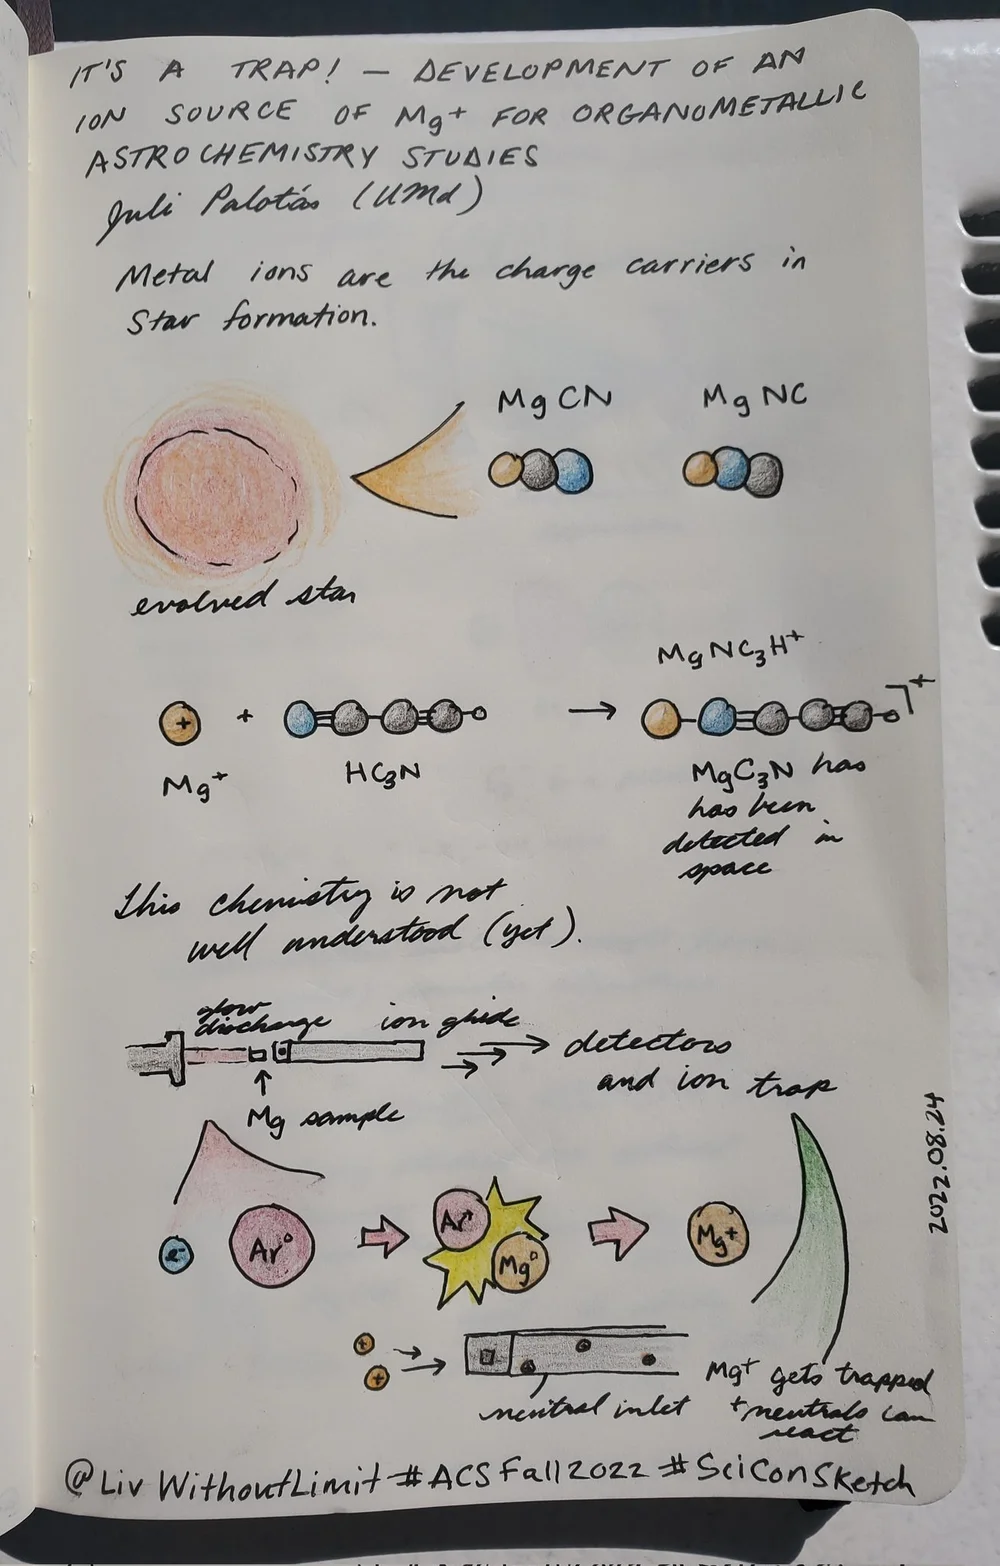 IT'S A TRAP! — DEVELOPMENT OF AN
ION SOURCE OF Mg+ FOR ORGANOMETALLIC
ASTROCHEMISTRY STUDIES
Juli Palotás (UMd)
Metal ions are the charge carriers in
Star formation.
MgCN
MgNC
evolved star
MgNC₃H⁺
+
+
→
⁺
Mg⁺
HC₃N
MgC₃N has
has been
detected in
space
This chemistry is not
well understood (yet).
glow
discharge
ion guide
detectors
and ion trap
Mg sample
2022.08.24
e⁻
Ar⁰
Ar⁺
Mg⁰
Mg⁺
+
+
neutral inlet
Mg⁺ gets trapped
+ neutrals can
react
@LivWithoutLimit #ACSFall2022 #SciConSketch